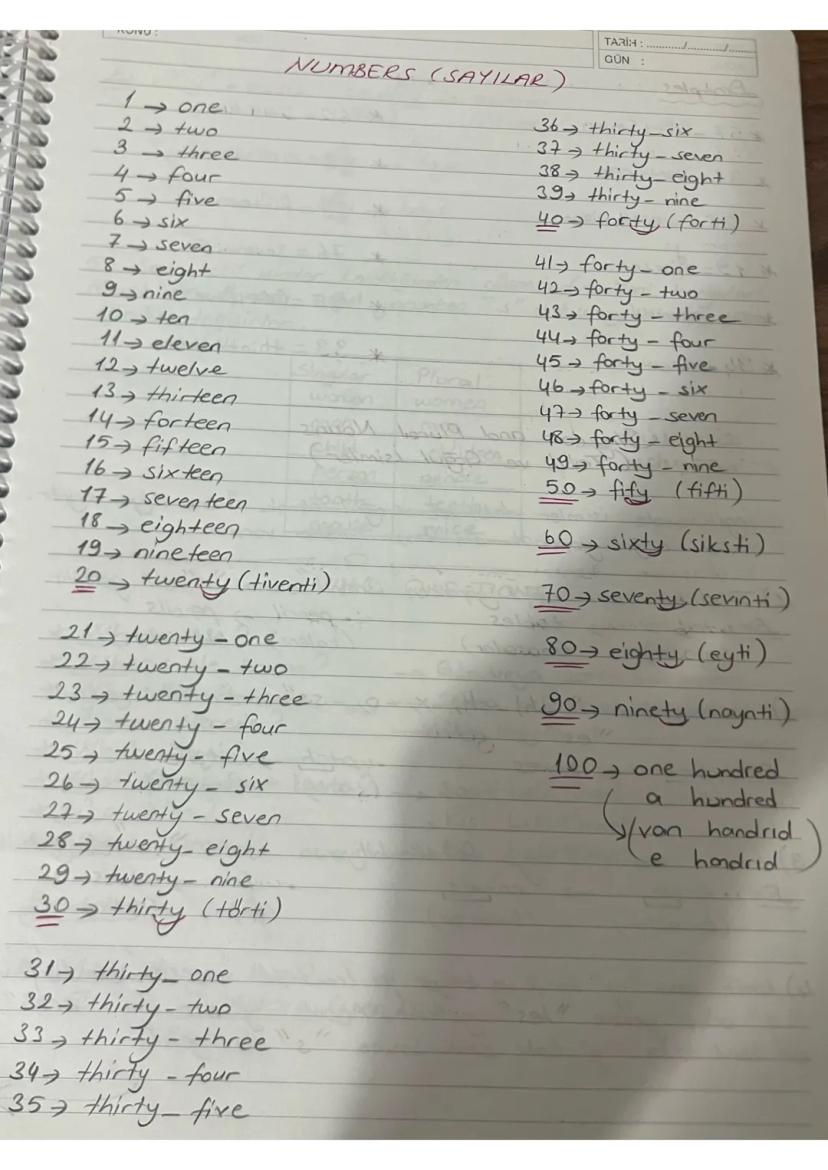 KONU:
TARİH : ........../........../..........
GÜN :
NUMBERS (SAYILAR)
1 → one
2 → two
3 → three
4 → four
5 → five
6 → six
7 → seven
8 → eight
9 → nine
10 → ten
11 → eleven
12 → twelve
13 → thirteen
14 → forteen
15 → fifteen
16 → sixteen
17 → seventeen
18 → eighteen
19 → nineteen
20 → twenty (tiventi)
21 → twenty - one
22 → twenty - two
23 → twenty - three
24 → twenty - four
25 → twenty - five
26 → twenty - six
27 → twenty - seven
28 → twenty - eight
29 → twenty - nine
30 → thirty (törti)
31 → thirty - one
32 → thirty - two
33 → thirty - three
34 → thirty - four
35 → thirty - five
36 → thirty - six
37 → thirty - seven
38 → thirty - eight
39 → thirty - nine
40 → forty (forti)
41 → forty - one
42 → forty - two
43 → forty - three
44 → forty - four
45 → forty - five
46 → forty - six
47 → forty - seven
48 → forty - eight
49 → forty - nine
50 → fify (fifti)
60 → sixty (siksti)
70 → seventy (sevinti)
80 → eighty (eyti)
90 → ninety (naynti)
100 → one hundred
a hundred
(van handrid
e handrid)